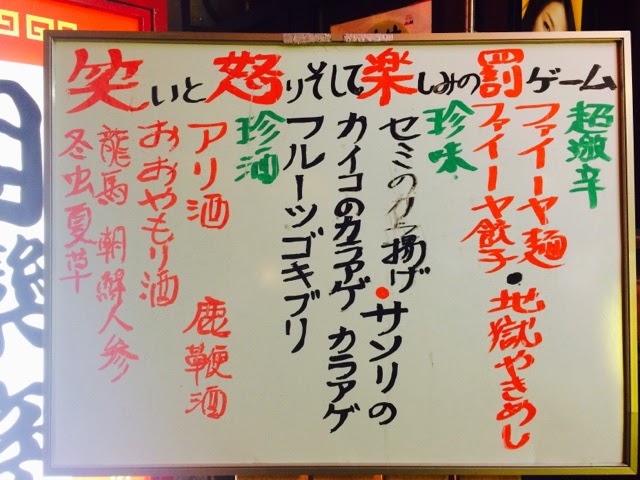 笑いと怒りそして楽しみの罰ゲーム
超激辛
ファイーヤ麺・地獄やきめし
ファイーヤ餃子
珍味
セミの 揚げ・サソリの
カイコのカラアゲ カラアゲ
フルーツゴキブリ
珍酒
アリ酒 鹿鞭酒
おおやもり酒
龍馬 朝鮮人参
冬虫夏草